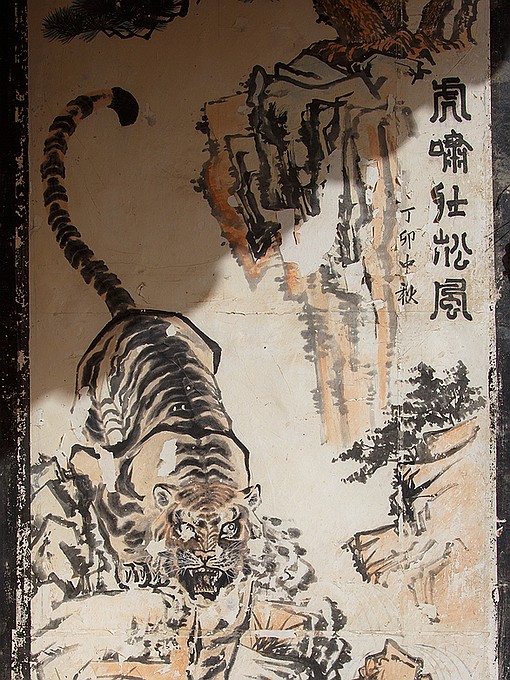 虎啸壮松风
丁卯中秋